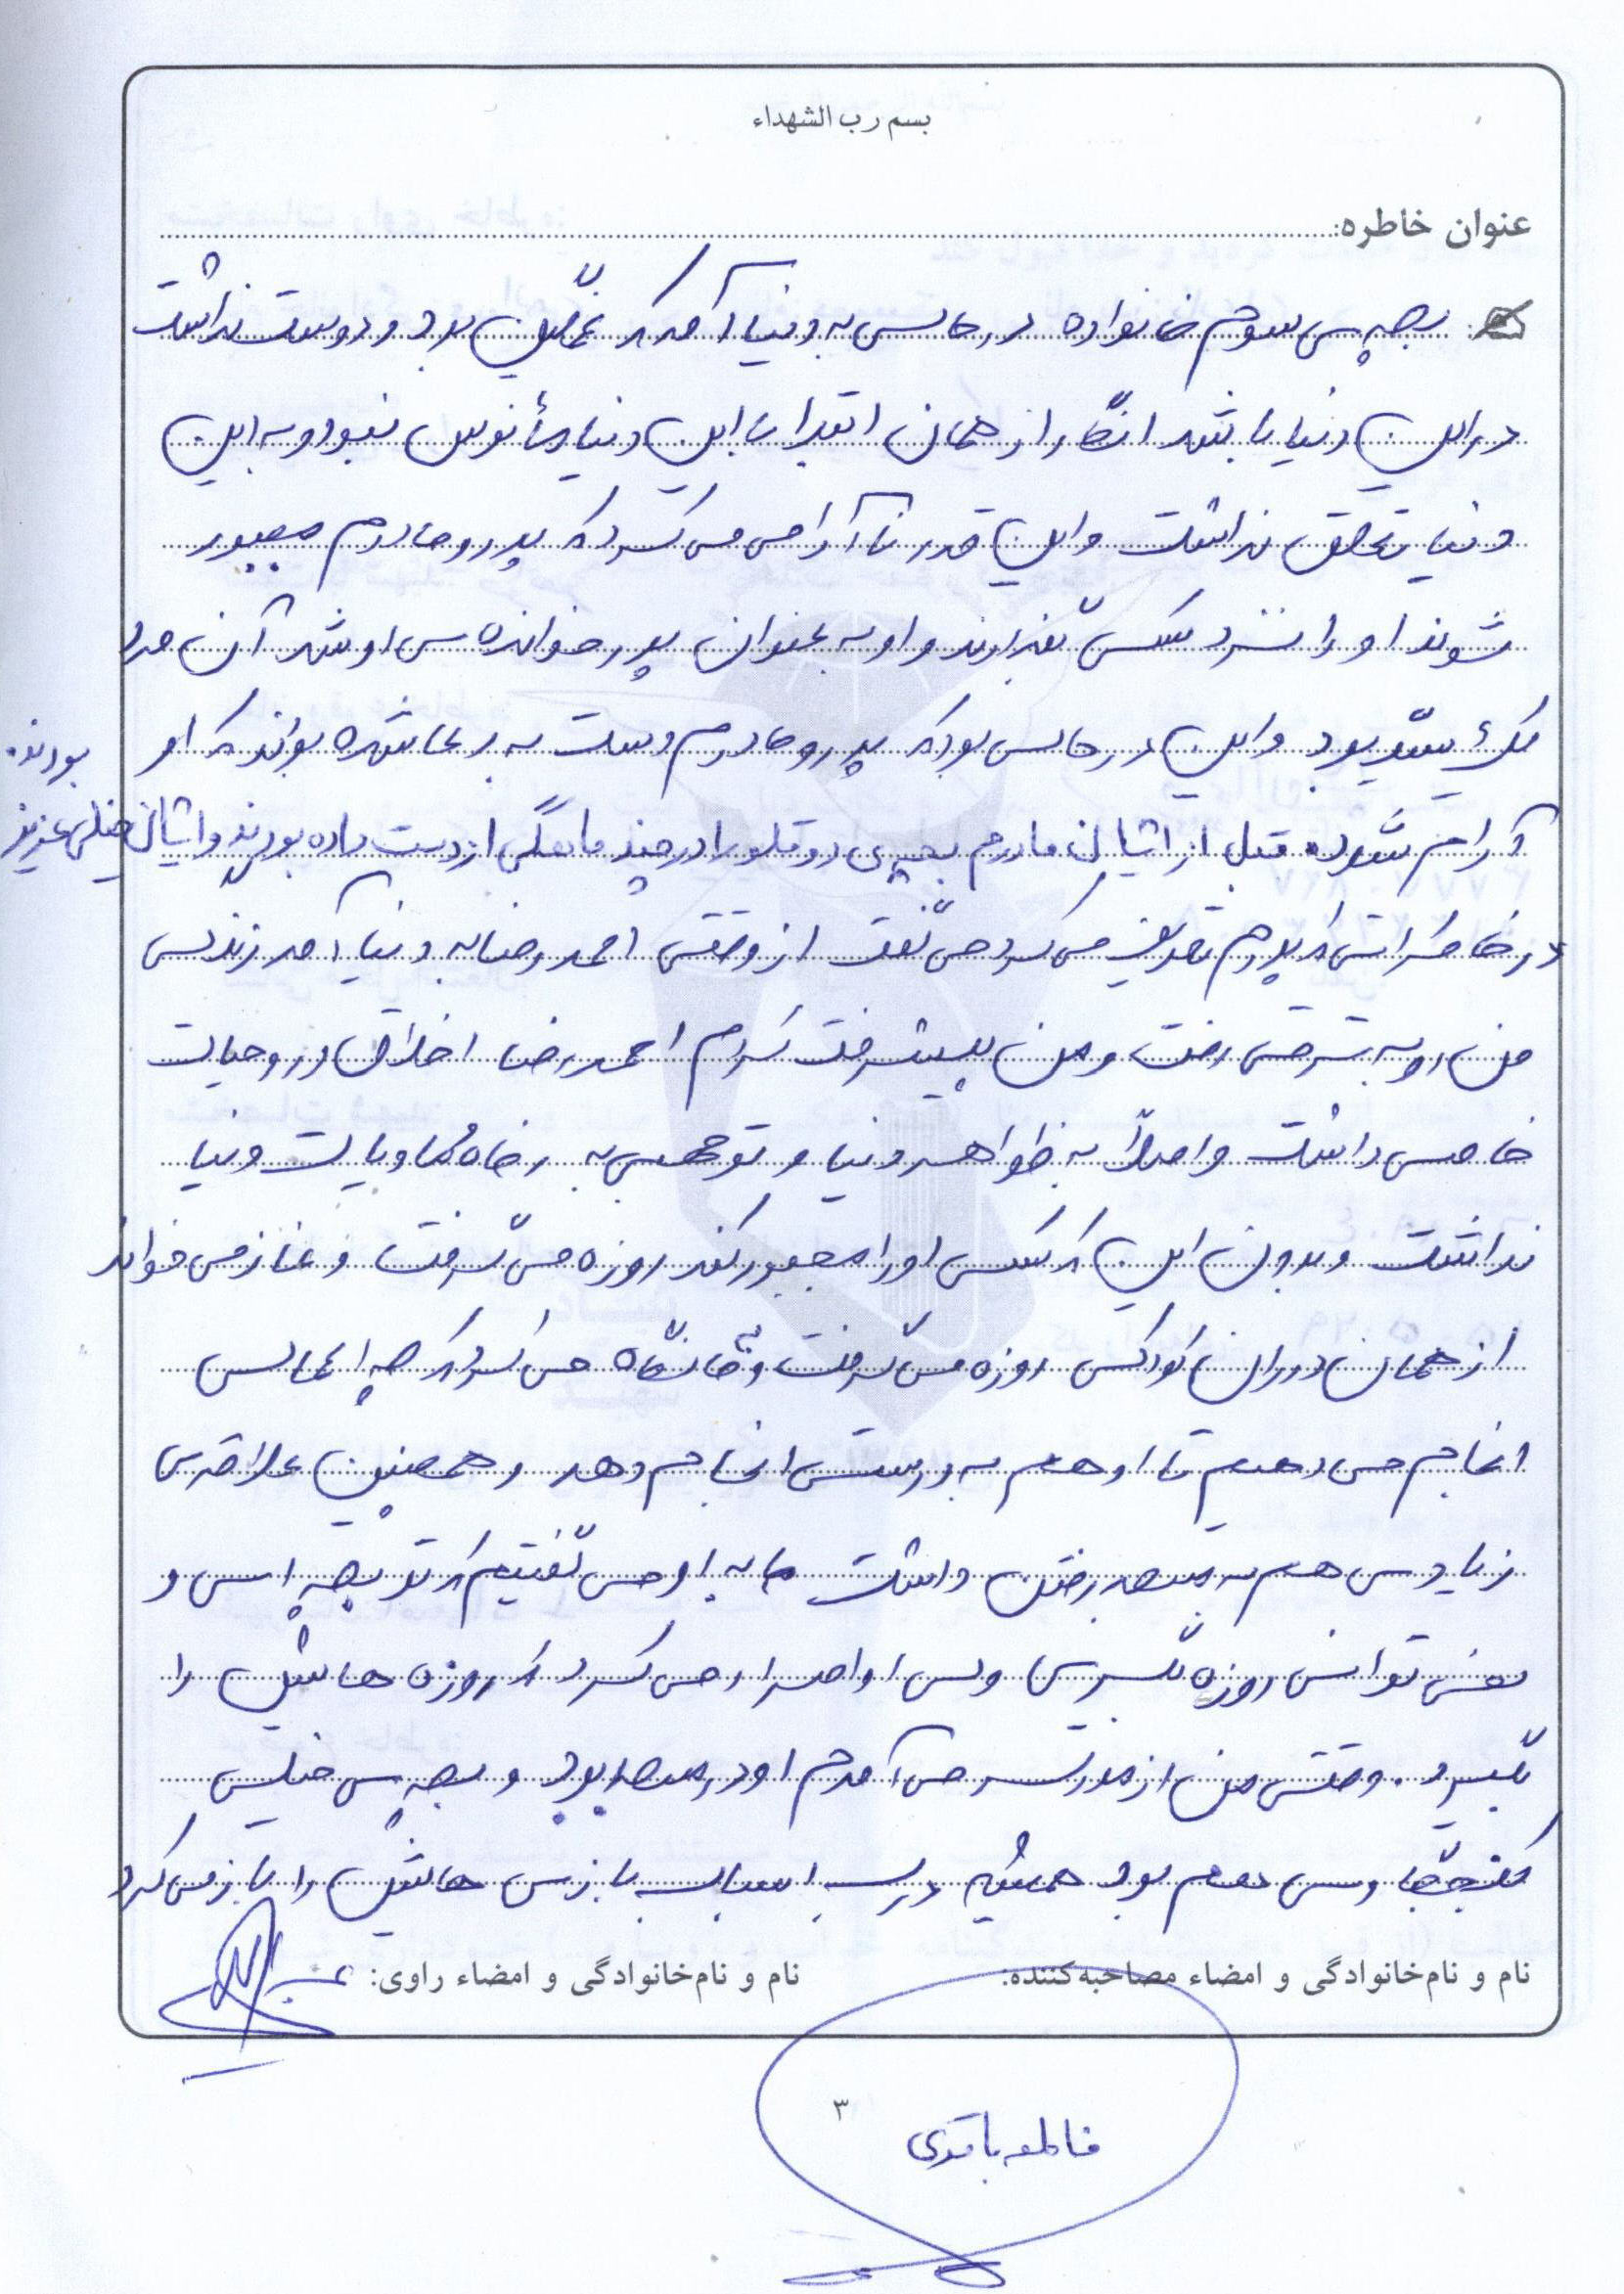 بسم رب الشهداء
عنوان خاطره:
بچه ی سوم خانواده در حالی به دنیا آمد که غمگین بود و دوست نداشت
در این دنیا باشد انگار از همان ابتدا با این دنیا مأنوس نبود و به این
دنیا تعلق نداشت و این قدر ناآرامی می کرد که پدر و مادرم مجبور
شوند او را نزد کسی بگذارند و او به عنوان پدر خوانده ی او شد آن مرد
یک سید بود و این در حالی بود که پدر و مادرم دست به دعا شده بودند که او
آرام شود. قبل از ایشان مادرم بچه ی دوقلو را در چند ماهگی از دست داده بودند و ایشان خیلی عزیز
بودند.
در خاطراتی که پدرم تعریف می کرد می گفت از وقتی احمدرضا به دنیا آمد زندگی
من رو به ترقی رفت و من پیشرفت کردم احمدرضا اخلاق و روحیات
خاصی داشت و اصلاً به ظواهر دنیا و توجهی به رفاه و مادیات دنیا
نداشت و بدون این که کسی او را مجبور کند روزه می گرفت و نماز می خواند
از همان دوران کودکی روزه می گرفت و نگاه می کرد که چه اعمالی
انجام می دهیم تا او هم به درستی انجام دهد و همچنین علاقه ی
زیادی هم به مسجد رفتن داشت ما به او می گفتیم که تو بچه ای و
نمی توانی روزه بگیری ولی او اصرار می کرد که روزه هایش را
بگیرد. وقتی من از مدرسه می آمدم او در مسجد بود و بچه ی خیلی
کنجکاوی هم بود همیشه اسباب بازی هایش را باز می کرد
نام و نام‌خانوادگی و امضاء مصاحبه‌کننده:
نام و نام‌خانوادگی و امضاء راوی:
۳
فاطمه باقری